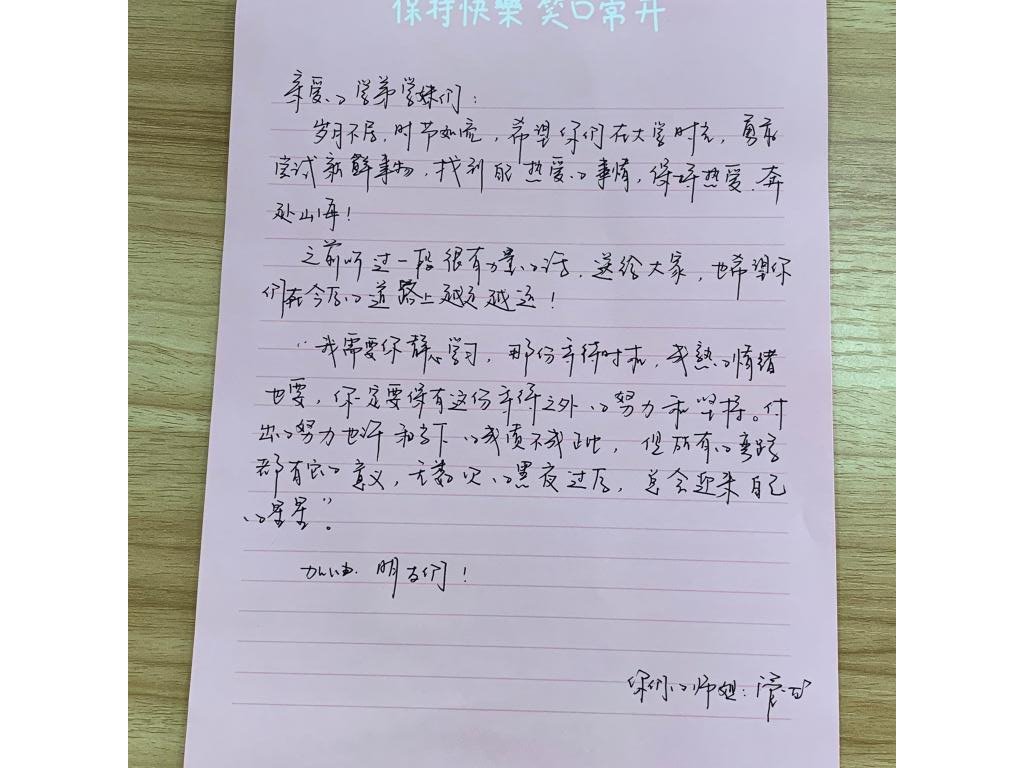 保持快樂 笑口常开
亲爱的学弟学妹们：
岁月不居，时节如流，希望你们在大学时光，勇敢
尝试新鲜事物，找到能热爱的事情，保持热爱，奔
赴山海！
之前听过一段很有力量的话，送给大家，也希望你
们在今后的道路上越走越远！
“我需要你静心学习，那份等待时机，成熟的情绪
也要，你一定要保有这份等待之外的努力和坚持。付
出的努力也许和当下的成质不成正比，但所有的弯路
都有它的意义，无数次的黑夜过后，总会迎来自己
的星星”。
加油，朋友们！
你们的师姐：